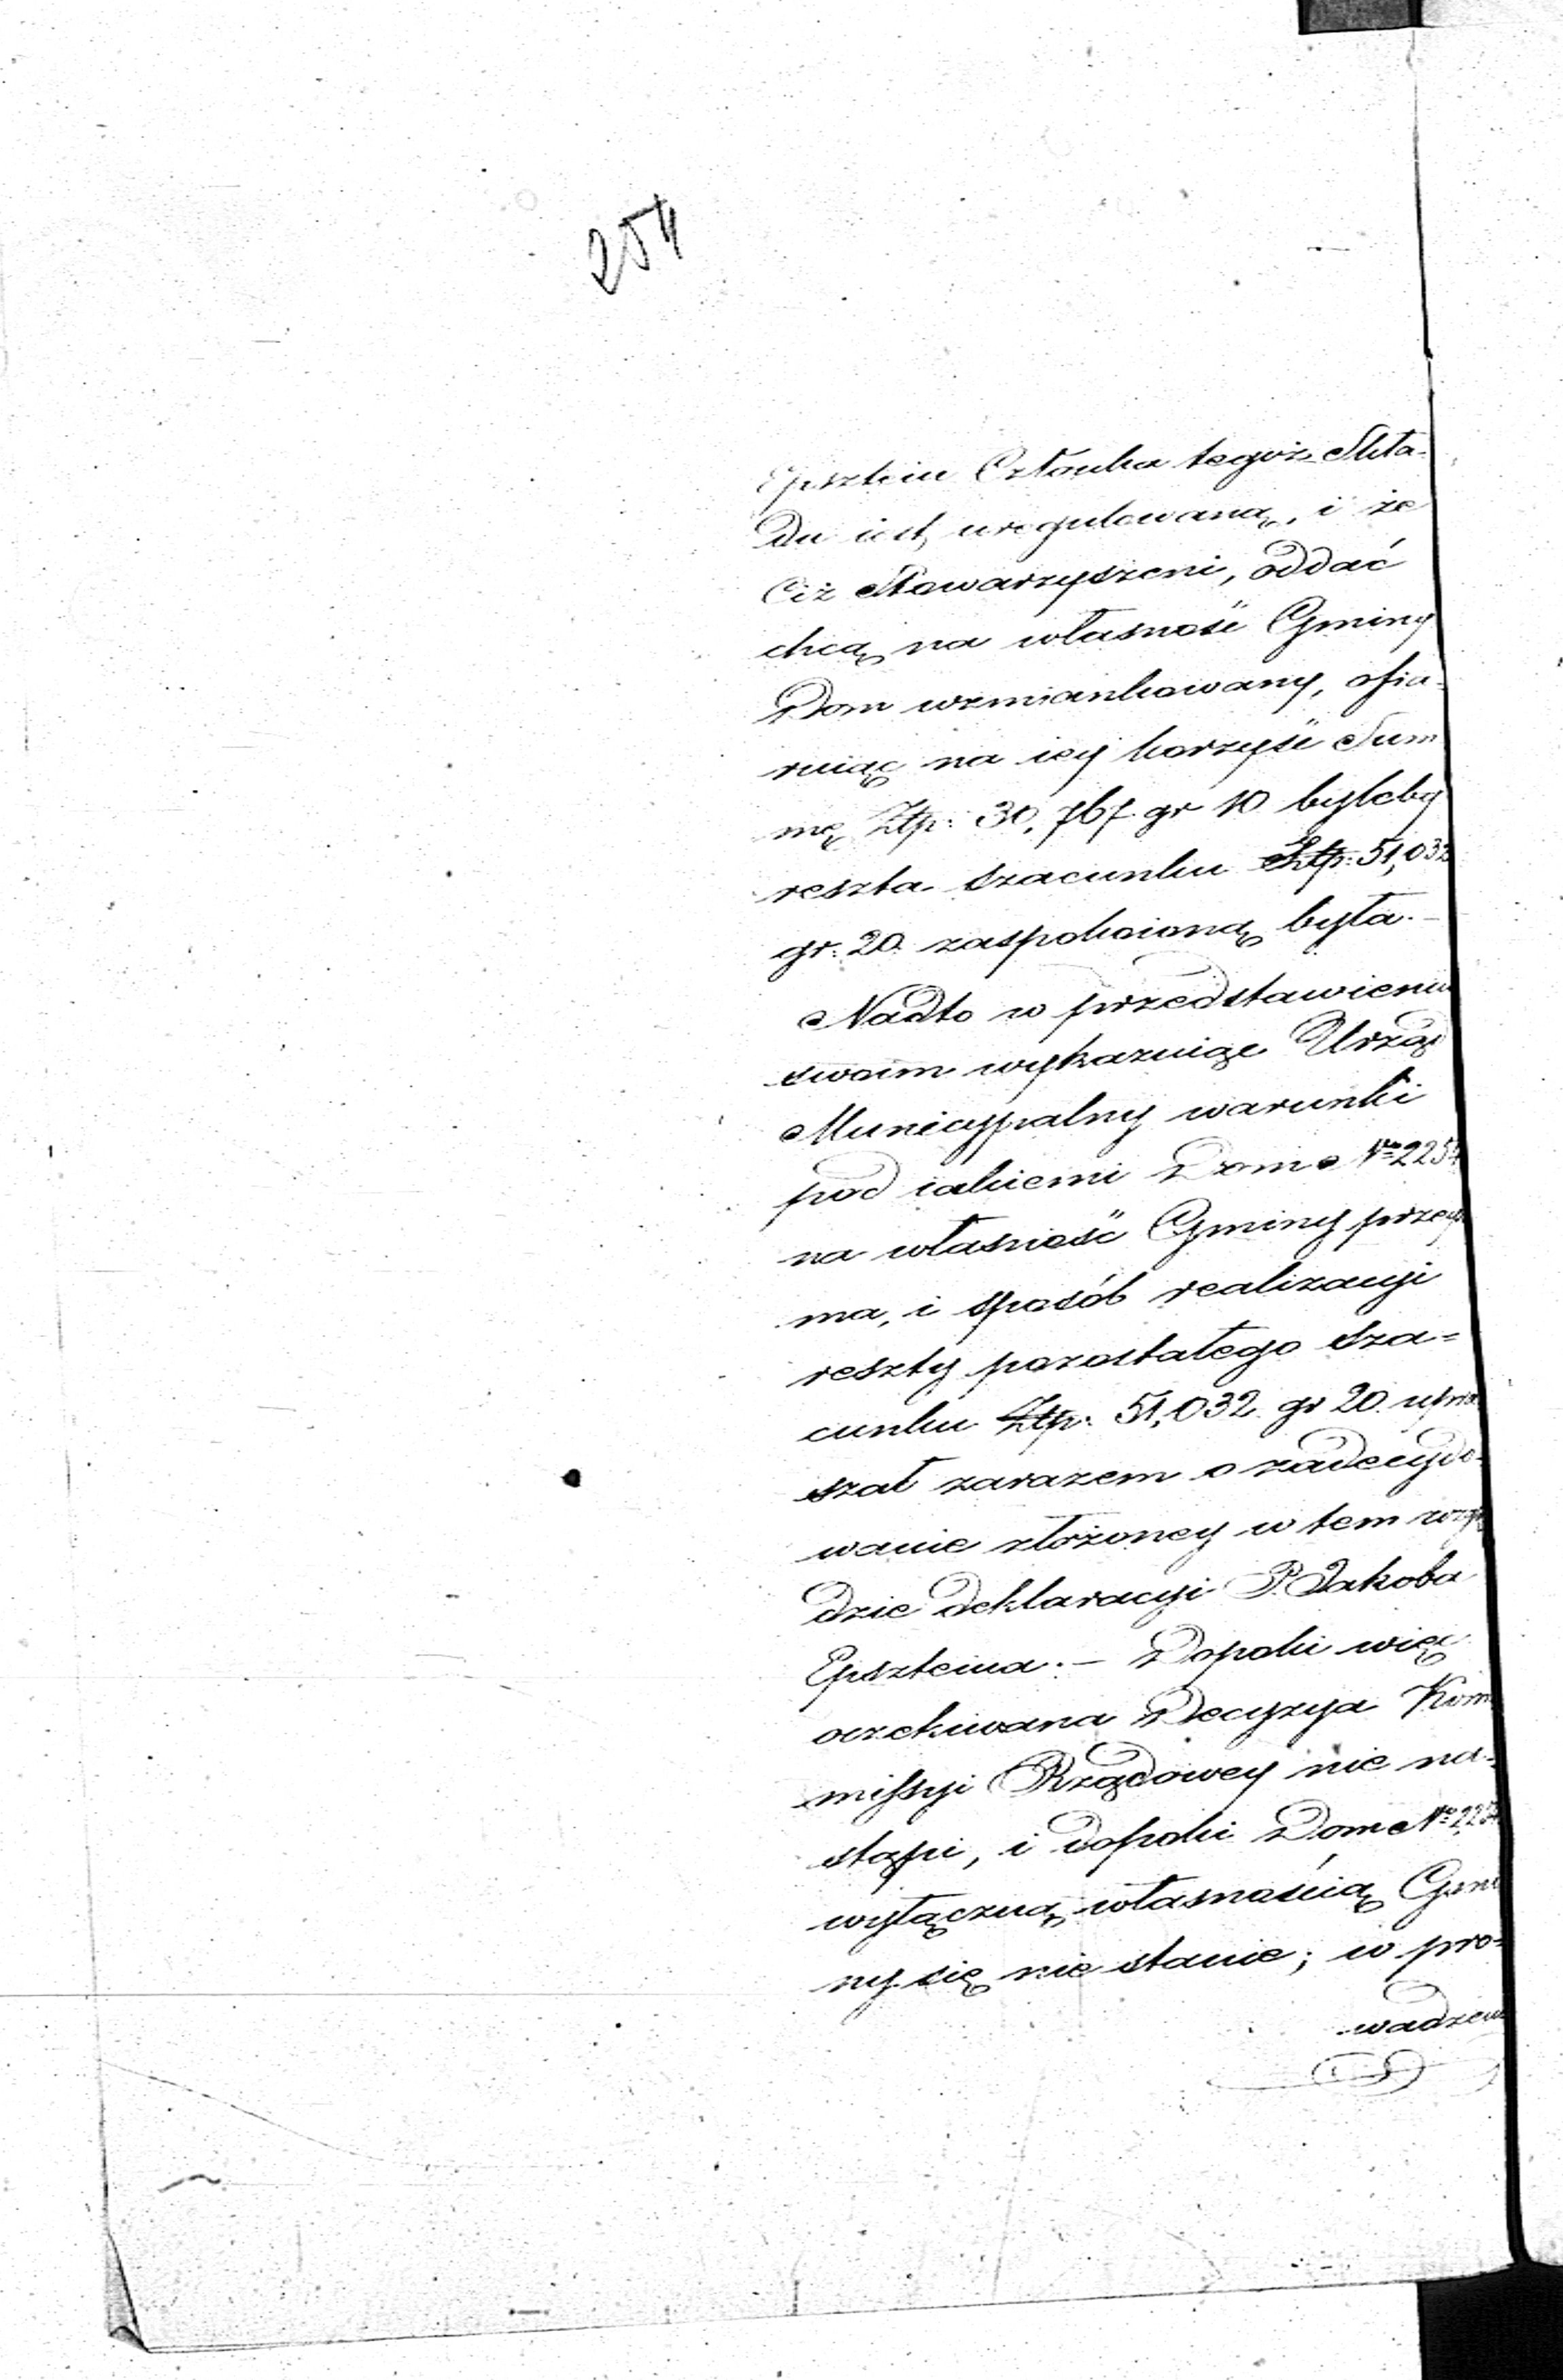 254
Epsztein Członka tegoż Skła-
du iest uregulowaną, i że
Ciż Stowarzyszeni, oddać
chcą na własność Gminy
Dom wzmiankowany, ofia-
ruiąc na iey korzyść Sum
mę Złp: 30,767. gr 10 byleby
reszta szacunku Złp: 51,032
gr: 20 zaspokoioną była. —
Nadto w przedstawieniu
swoim wykazuiąc Urząd
Municypalny warunki
pod iakiemi Dom Nro 2254
na własność Gminy przey
ma, i sposób realizacyi
reszty pozostałego sza=
cunku Złp: 51,032 gr 20. upra
szał zarazem o zadecydo-
wanie złożoney w tem wzglę
dzie deklaracyi P. Jakoba
Epszteina. — Dopoki więc
oczekiwana Decyzya Kom
missyi Rządowey nie na-
stąpi, i dopoki Dom Nro 2254
wyłączną własnością Gmi
ny się nie stanie; w pro=
wadzeni